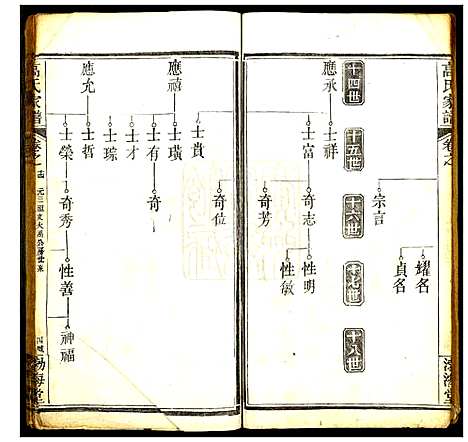 高氏家譜
卷之
渤海堂
耀名
貞名
宗言
十四世
十五世
十六世
十七世
十八世
應承
士祥
士富
奇志
性明
性敏
奇芳
士貴
奇位
應禎
士璜
士有
奇
士才
士琮
應允
士哲
士榮
奇秀
性善
神福
高氏家譜
卷之
渤海堂